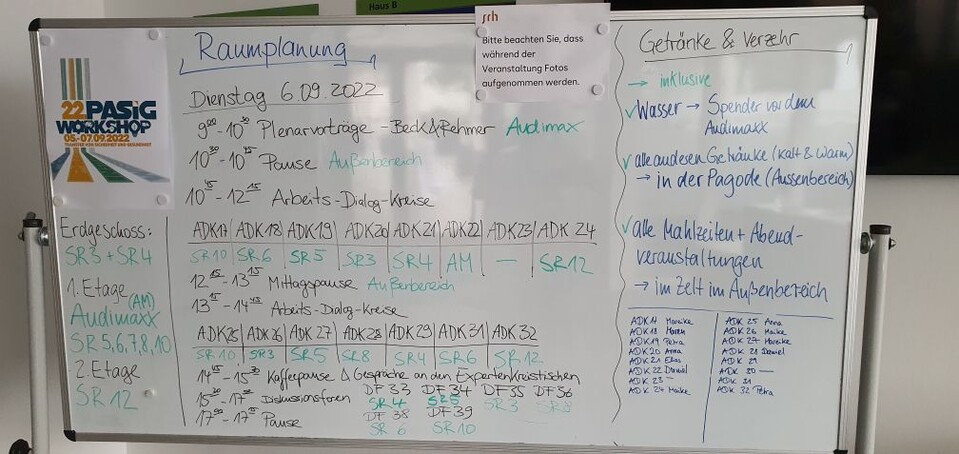 Haus B
22. PASIG
WORKSHOP
05.-07.09.2022
TRANSFER VON SICHERHEIT UND GESUNDHEIT
srh
Bitte beachten Sie, dass
während der
Veranstaltung Fotos
aufgenommen werden.
Erdgeschoss:
SR3 + SR4
1. Etage
(AM)
Audimaxx
SR 5,6,7,8,10
2. Etage
SR 12
Raumplanung
Dienstag 6.09.2022
9⁰⁰-10³⁰ Plenarvorträge - Beck & Rehmer Audimax
10³⁰-10⁴⁵ Pause Außenbereich
10⁴⁵-12¹⁵ Arbeits-Dialog-Kreise
ADK17 ADK18 ADK19 ADK20 ADK21 ADK22 ADK23 ADK 24
SR10 SR6 SR5 SR3 SR4 AM — SR12
12¹⁵-13¹⁵ Mittagspause Außenbereich
13¹⁵-14⁴⁵ Arbeits-Dialog-Kreise
ADK25 ADK26 ADK 27 ADK28 ADK29 ADK31 ADK 32
SR10 SR3 SR5 SR8 SR4 SR6 SR12
14⁴⁵-15³⁰ Kaffeepause & Gespräche an den Expertenkreistischen
15³⁰-17⁰⁰ Diskussionsforen DF 33 DF 34 DF 35 DF 36
SR4 SR5 SR3 SR8
17⁰⁰-17¹⁵ Pause DF 38 DF39
SR 6 SR10
Getränke & Verzehr
→ inklusive
✓ Wasser → Spender vor dem
Audimaxx
✓ alle anderen Getränke (kalt & warm)
→ in der Pagode (Aussenbereich)
✓ alle Mahlzeiten + Abend-
veranstaltungen
→ im Zelt im Außenbereich
ADK 17 Mareike
ADK 18
ADK 19 Petra
ADK 20 Anna
ADK 21 Elias
ADK 22 Daniel
ADK 23 —
ADK 24 Maike
ADK 25 Anna
ADK 26 Maike
ADK 27 Mareike
ADK 28 Daniel
ADK 29
ADK 30 —
ADK 31
ADK 32 Petra